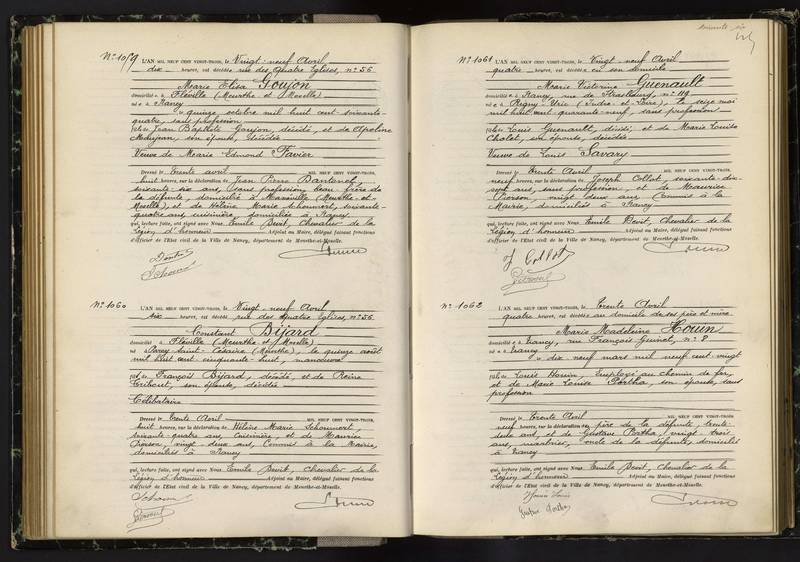 N° 1059
L'AN MIL NEUF CENT VINGT-TROIS, le Vingt-neuf Avril
dix heures, est décédée rue des Quatre Églises, n° 56
Marie Elisa Goujon
domiciliée à Fléville (Meurthe et Moselle)
née à Nancy
le quinze octobre mil huit cent soixante-
quatre, sans profession
fille de Jean Baptiste Goujon, décédé, et de Apoline
son épouse, décédée
Veuve de Marie Edmond Favier
Dressé le trente avril MIL NEUF CENT VINGT-TROIS,
huit heures, sur la déclaration de Jean Pierre
soixante-six ans, sans profession, beau-frère de
la défunte, domicilié à (Meurthe-et-
Moselle) et de Hélène Marie Schoumert, soixante-
quatre ans cuisinière, domiciliée à Nancy
qui, lecture faite, ont signé avec Nous Emile Devit, Chevalier de la
Légion d'honneur Adjoint au Maire, délégué faisant fonctions
d'officier de l'État civil de la Ville de Nancy, département de Meurthe-et-Moselle.
N° 1060
L'AN MIL NEUF CENT VINGT-TROIS, le Vingt-neuf Avril
six heures, est décédé rue des Quatre Églises, n° 56
Constant Bijard
domicilié à Fléville (Meurthe et Moselle)
né à Saint- (Meurthe), le quinze août
mil huit cent cinquante huit, manœuvre
fils de François Bijard, décédé, et de Reine
son épouse, décédée
Célibataire
Dressé le trente Avril MIL NEUF CENT VINGT-TROIS,
huit heures, sur la déclaration de Hélène Marie Schoumert,
soixante-quatre ans, Cuisinière, et de Maurice
Pierson, vingt-deux ans, Commis à la Mairie,
domiciliés à Nancy
qui, lecture faite, ont signé avec Nous Emile Devit, Chevalier de la
Légion d'honneur Adjoint au Maire, délégué faisant fonctions
d'officier de l'État civil de la Ville de Nancy, département de Meurthe-et-Moselle.
N° 1061
L'AN MIL NEUF CENT VINGT-TROIS, le Vingt neuf Avril
quatre heures, est décédée en son domicile
Marie Victorine Guenault
domiciliée à Nancy, rue de Strasbourg, n° 119
née à Rigny-Ussé (Indre et Loire), le seize mai
mil huit cent quarante neuf, sans profession
fille de Louis Guenault, décédé, et de Marie Louise
Cholet, son épouse, décédée
Veuve de Louis Savary
Dressé le trente Avril MIL NEUF CENT VINGT-TROIS,
neuf heures, sur la déclaration de Joseph Collot, soixante-dix
sept ans, sans profession, et de Maurice
Pierson vingt deux ans Commis à la
Mairie, domiciliés à Nancy
qui, lecture faite, ont signé avec Nous Emile Devit, Chevalier de la
Légion d'honneur Adjoint au Maire, délégué faisant fonctions
d'officier de l'État civil de la Ville de Nancy, département de Meurthe-et-Moselle.
J Collot
N° 1062
L'AN MIL NEUF CENT VINGT-TROIS, le trente Avril
quatre heures, est décédée au domicile de ses père et mère
Marie Madeleine Houin
domiciliée à Nancy, rue François n° 8
née à Nancy
le dix neuf mars mil neuf cent vingt
fille de Louis Houin, Employé au Chemin de fer,
et de Marie Louise Portha, son épouse, sans
profession
Dressé le trente Avril MIL NEUF CENT VINGT-TROIS,
neuf heures, sur la déclaration du père de la défunte, trente-
deux ans, et de Gustave Portha, vingt trois
ans, marbrier, oncle de la défunte, domiciliés
à Nancy
qui, lecture faite, ont signé avec Nous Emile Devit, Chevalier de la
Légion d'honneur Adjoint au Maire, délégué faisant fonctions
d'officier de l'État civil de la Ville de Nancy, département de Meurthe-et-Moselle.
Houin Louis
Gustave Portha